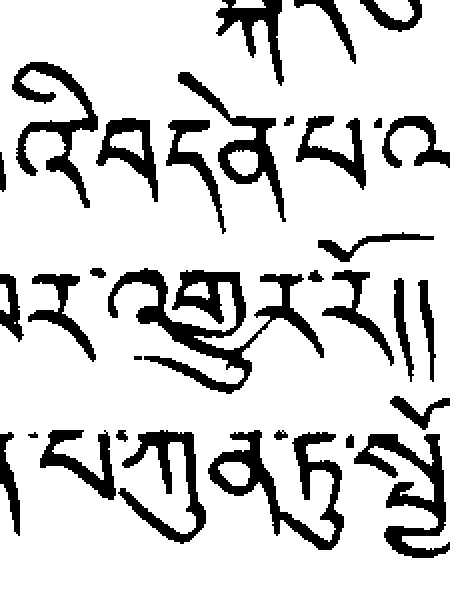 འི་བདེན་པ་འ
ར་འགྱུར་རོ༎
པ་ཀུན་ཏུ་སྤྱོ